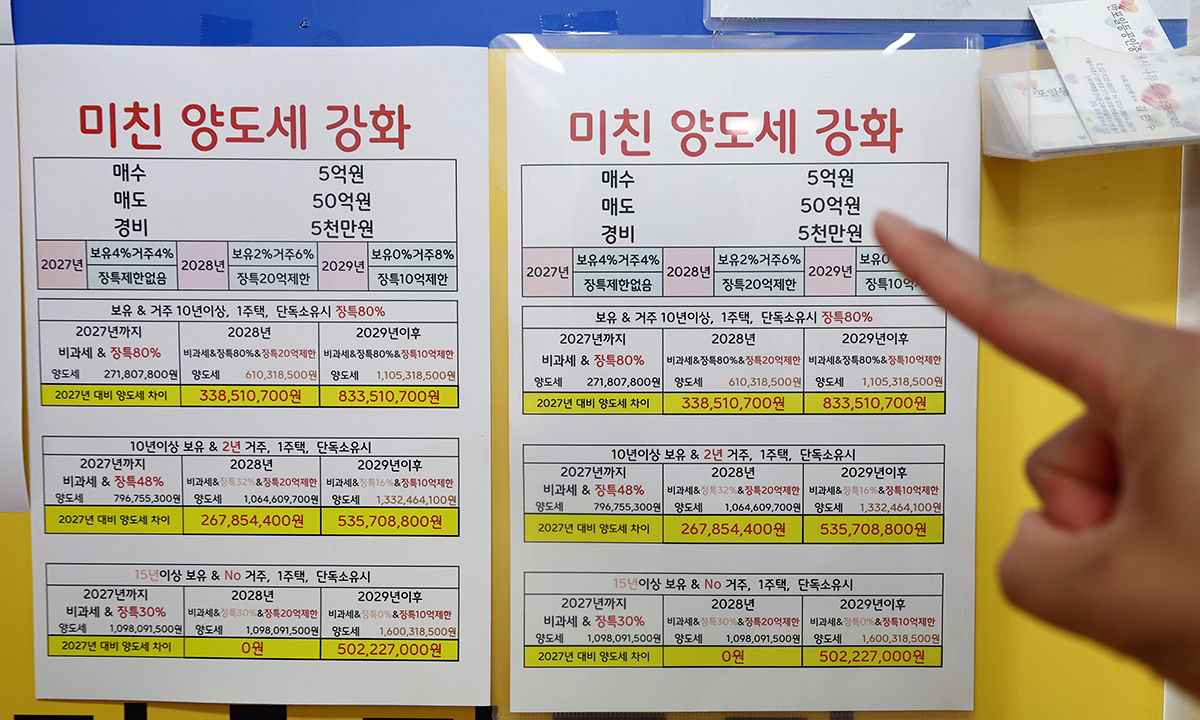 미친 양도세 강화
매수 5억원
매도 50억원
경비 5천만원
2027년 보유4%거주4% 2028년 보유2%거주6% 2029년 보유0%거주8%
장특제한없음 장특20억제한 장특10억제한
보유 & 거주 10년이상, 1주택, 단독소유시 장특80%
2027년까지 2028년 2029년이후
비과세 & 장특80% 비과세&장특80%&장특20억제한 비과세&장특80%&장특10억제한
양도세 271,807,800원 양도세 610,318,500원 양도세 1,105,318,500원
2027년 대비 양도세 차이 338,510,700원 833,510,700원
10년이상 보유 & 2년 거주, 1주택, 단독소유시
2027년까지 2028년 2029년이후
비과세 & 장특48% 비과세&장특32%&장특20억제한 비과세&장특16%&장특10억제한
양도세 796,755,300원 양도세 1,064,609,700원 양도세 1,332,464,100원
2027년 대비 양도세 차이 267,854,400원 535,708,800원
15년이상 보유 & No 거주, 1주택, 단독소유시
2027년까지 2028년 2029년이후
비과세 & 장특30% 비과세&장특30%&장특20억제한 비과세&장특0%&장특10억제한
양도세 1,098,091,500원 양도세 1,098,091,500원 양도세 1,600,318,500원
2027년 대비 양도세 차이 0원 502,227,000원
미친 양도세 강화
매수 5억원
매도 50억원
경비 5천만원
2027년 보유4%거주4% 2028년 보유2%거주6% 2029년 보유0
장특제한없음 장특20억제한 장특10억제
보유 & 거주 10년이상, 1주택, 단독소유시 장특80%
2027년까지 2028년 2029년이후
비과세 & 장특80% 비과세&장특80%&장특20억제한 비과세&장특80%&장특10억제한
양도세 271,807,800원 양도세 610,318,500원 양도세 1,105,318,500원
2027년 대비 양도세 차이 338,510,700원 833,510,700원
10년이상 보유 & 2년 거주, 1주택, 단독소유시
2027년까지 2028년 2029년이후
비과세 & 장특48% 비과세&장특32%&장특20억제한 비과세&장특16%&장특10억제한
양도세 796,755,300원 양도세 1,064,609,700원 양도세 1,332,464,100원
2027년 대비 양도세 차이 267,854,400원 535,708,800원
15년이상 보유 & No 거주, 1주택, 단독소유시
2027년까지 2028년 2029년이후
비과세 & 장특30% 비과세&장특30%&장특20억제한 비과세&장특0%&장특10억제한
양도세 1,098,091,500원 양도세 1,098,091,500원 양도세 1,600,318,500원
2027년 대비 양도세 차이 0원 502,227,000원